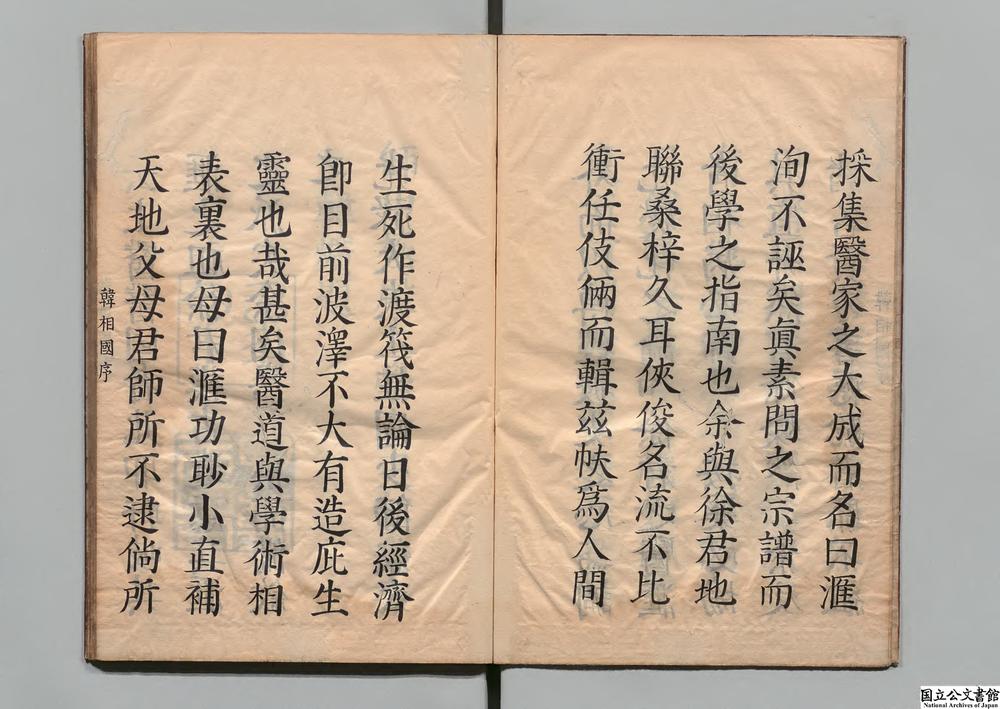 採集醫家之大成而名曰滙
洵不誣矣眞素問之宗譜而
後學之指南也余與徐君地
聯桑梓久耳俠俊名流不比
衝任伎倆而輯茲帙爲人間
生死作渡筏無論日後經濟
卽目前波澤不大有造庇生
靈也哉甚矣醫道與學術相
表裏也毋曰滙功眇小直補
天地父母君師所不逮倘所
韓相國序
国立公文書館
National Archives of Japan